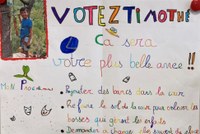 VOTEZ TIMOTHÉ
Ça sera
votre plus belle année !!
MON Program
• Rajouter des bancs dans la cour
• Refaire le sol de la cour pour enlever des
bosses qui gênent les enfants
• Demander à changer